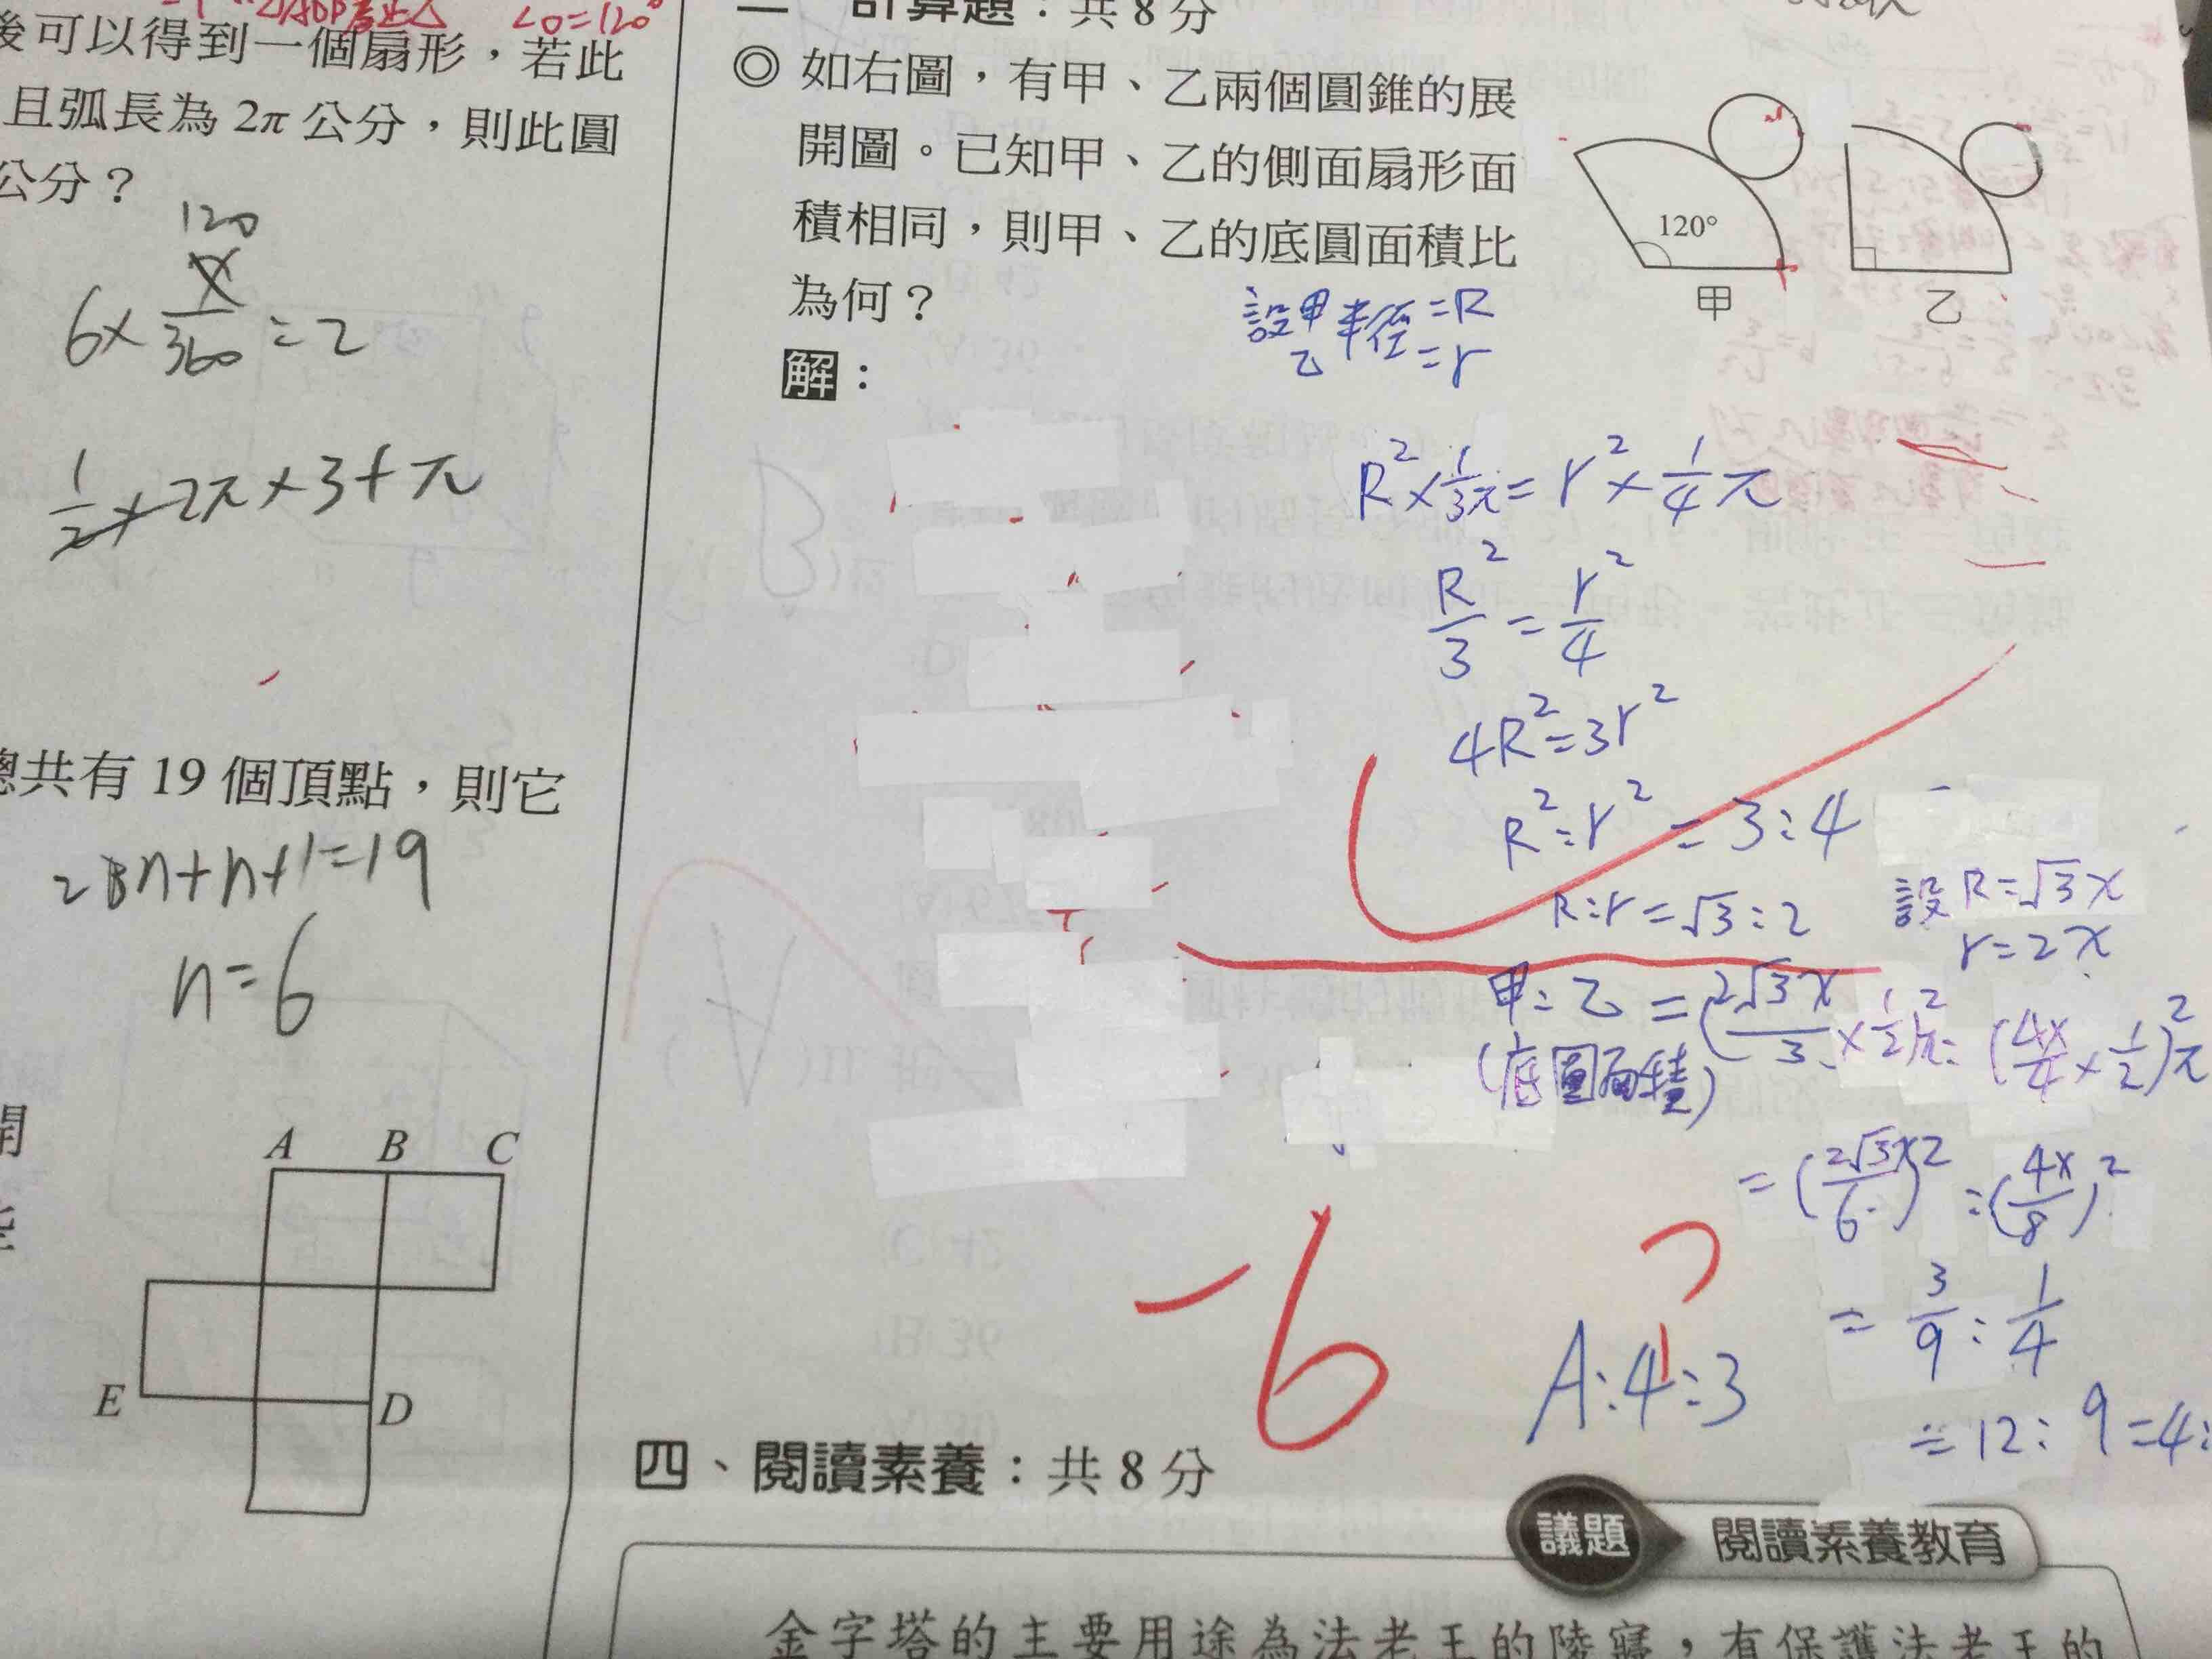 ∠O=120°
後可以得到一個扇形，若此
且弧長為 2π 公分，則此圓
公分？
120
6×x/360=2
1/2×2π×3+π
總共有 19 個頂點，則它
2n+n+1=19
n=6
開
A B C
E D
計算題：共 8 分
◎ 如右圖，有甲、乙兩個圓錐的展
開圖。已知甲、乙的側面扇形面
積相同，則甲、乙的底圓面積比
為何？
120°
甲 乙
設甲半徑=R
乙 =r
解：
R²×1/3π=r²×1/4π
R²/3=r²/4
4R²=3r²
R²:r²=3:4
R:r=√3:2
設R=√3x
r=2x
甲:乙=(2√3x/3×1/2)²π:(4x/4×1/2)²π
(底圓面積)
=(2√3x/6)²:(4x/8)²
=3/9:1/4
=12:9=4:
-6
A:4:3
四、閱讀素養：共 8 分
議題 閱讀素養教育
金字塔的主要用途為法老王的陵寢，有保護法老王的